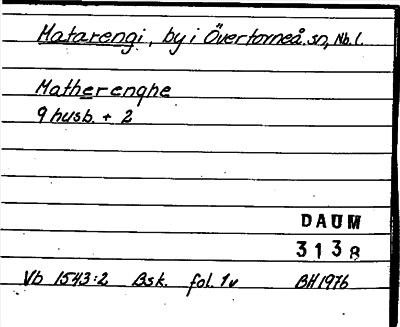 Matarengi, by i Övertorneå sn, Nb. l.
Matherenghe
9 husb. + 2
DAUM
3138
Vb 1543:2 Bsk. fol. 1v BH 1976